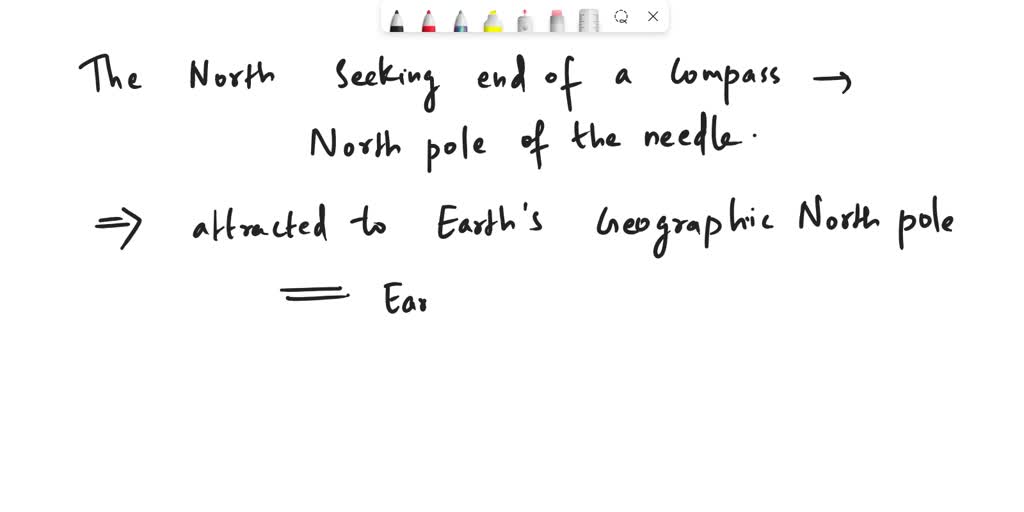 The North Seeking end of a Compass →
North pole of the needle.
⇒ attracted to Earth's Geographic North pole
= Ear